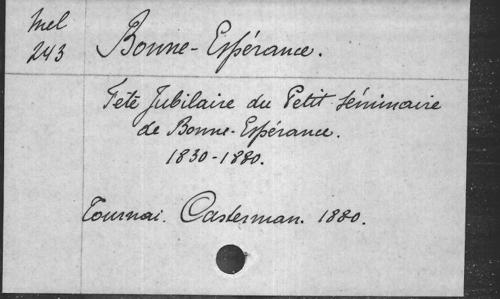 Mel
243
Bonne-Espérance.
Fête Jubilaire du Petit Séminaire
de Bonne-Espérance.
1830-1880.
Tournai. Casterman. 1880.